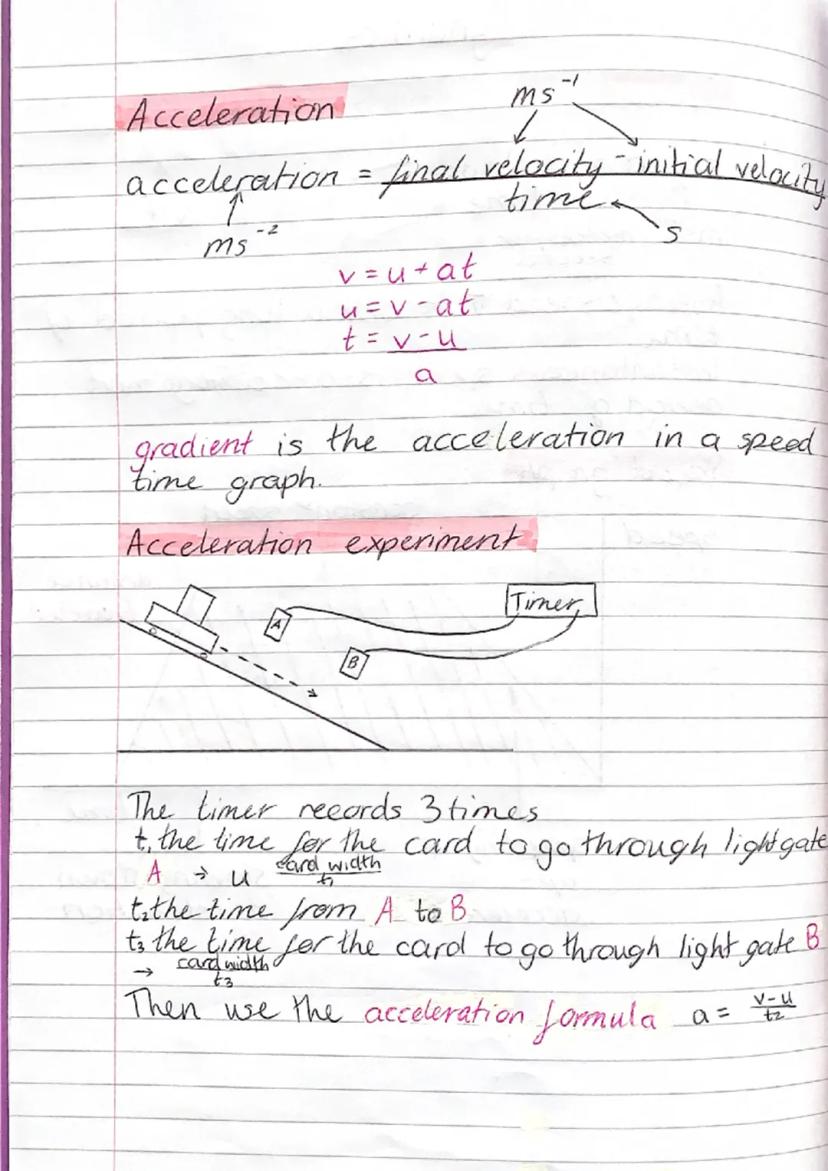 Acceleration
ms⁻¹
acceleration = final velocity - initial velocity
time
ms⁻²
s
v = u + at
u = v - at
t = v - u
a
gradient is the acceleration in a speed
time graph.
Acceleration experiment
Timer
A
B
The timer records 3 times
t₁ the time for the card to go through light gate
A → u card width
t₁
t₂ the time from A to B
t₃ the time for the card to go through light gate B
→ card width
t₃
Then use the acceleration formula a = v-u
t₂